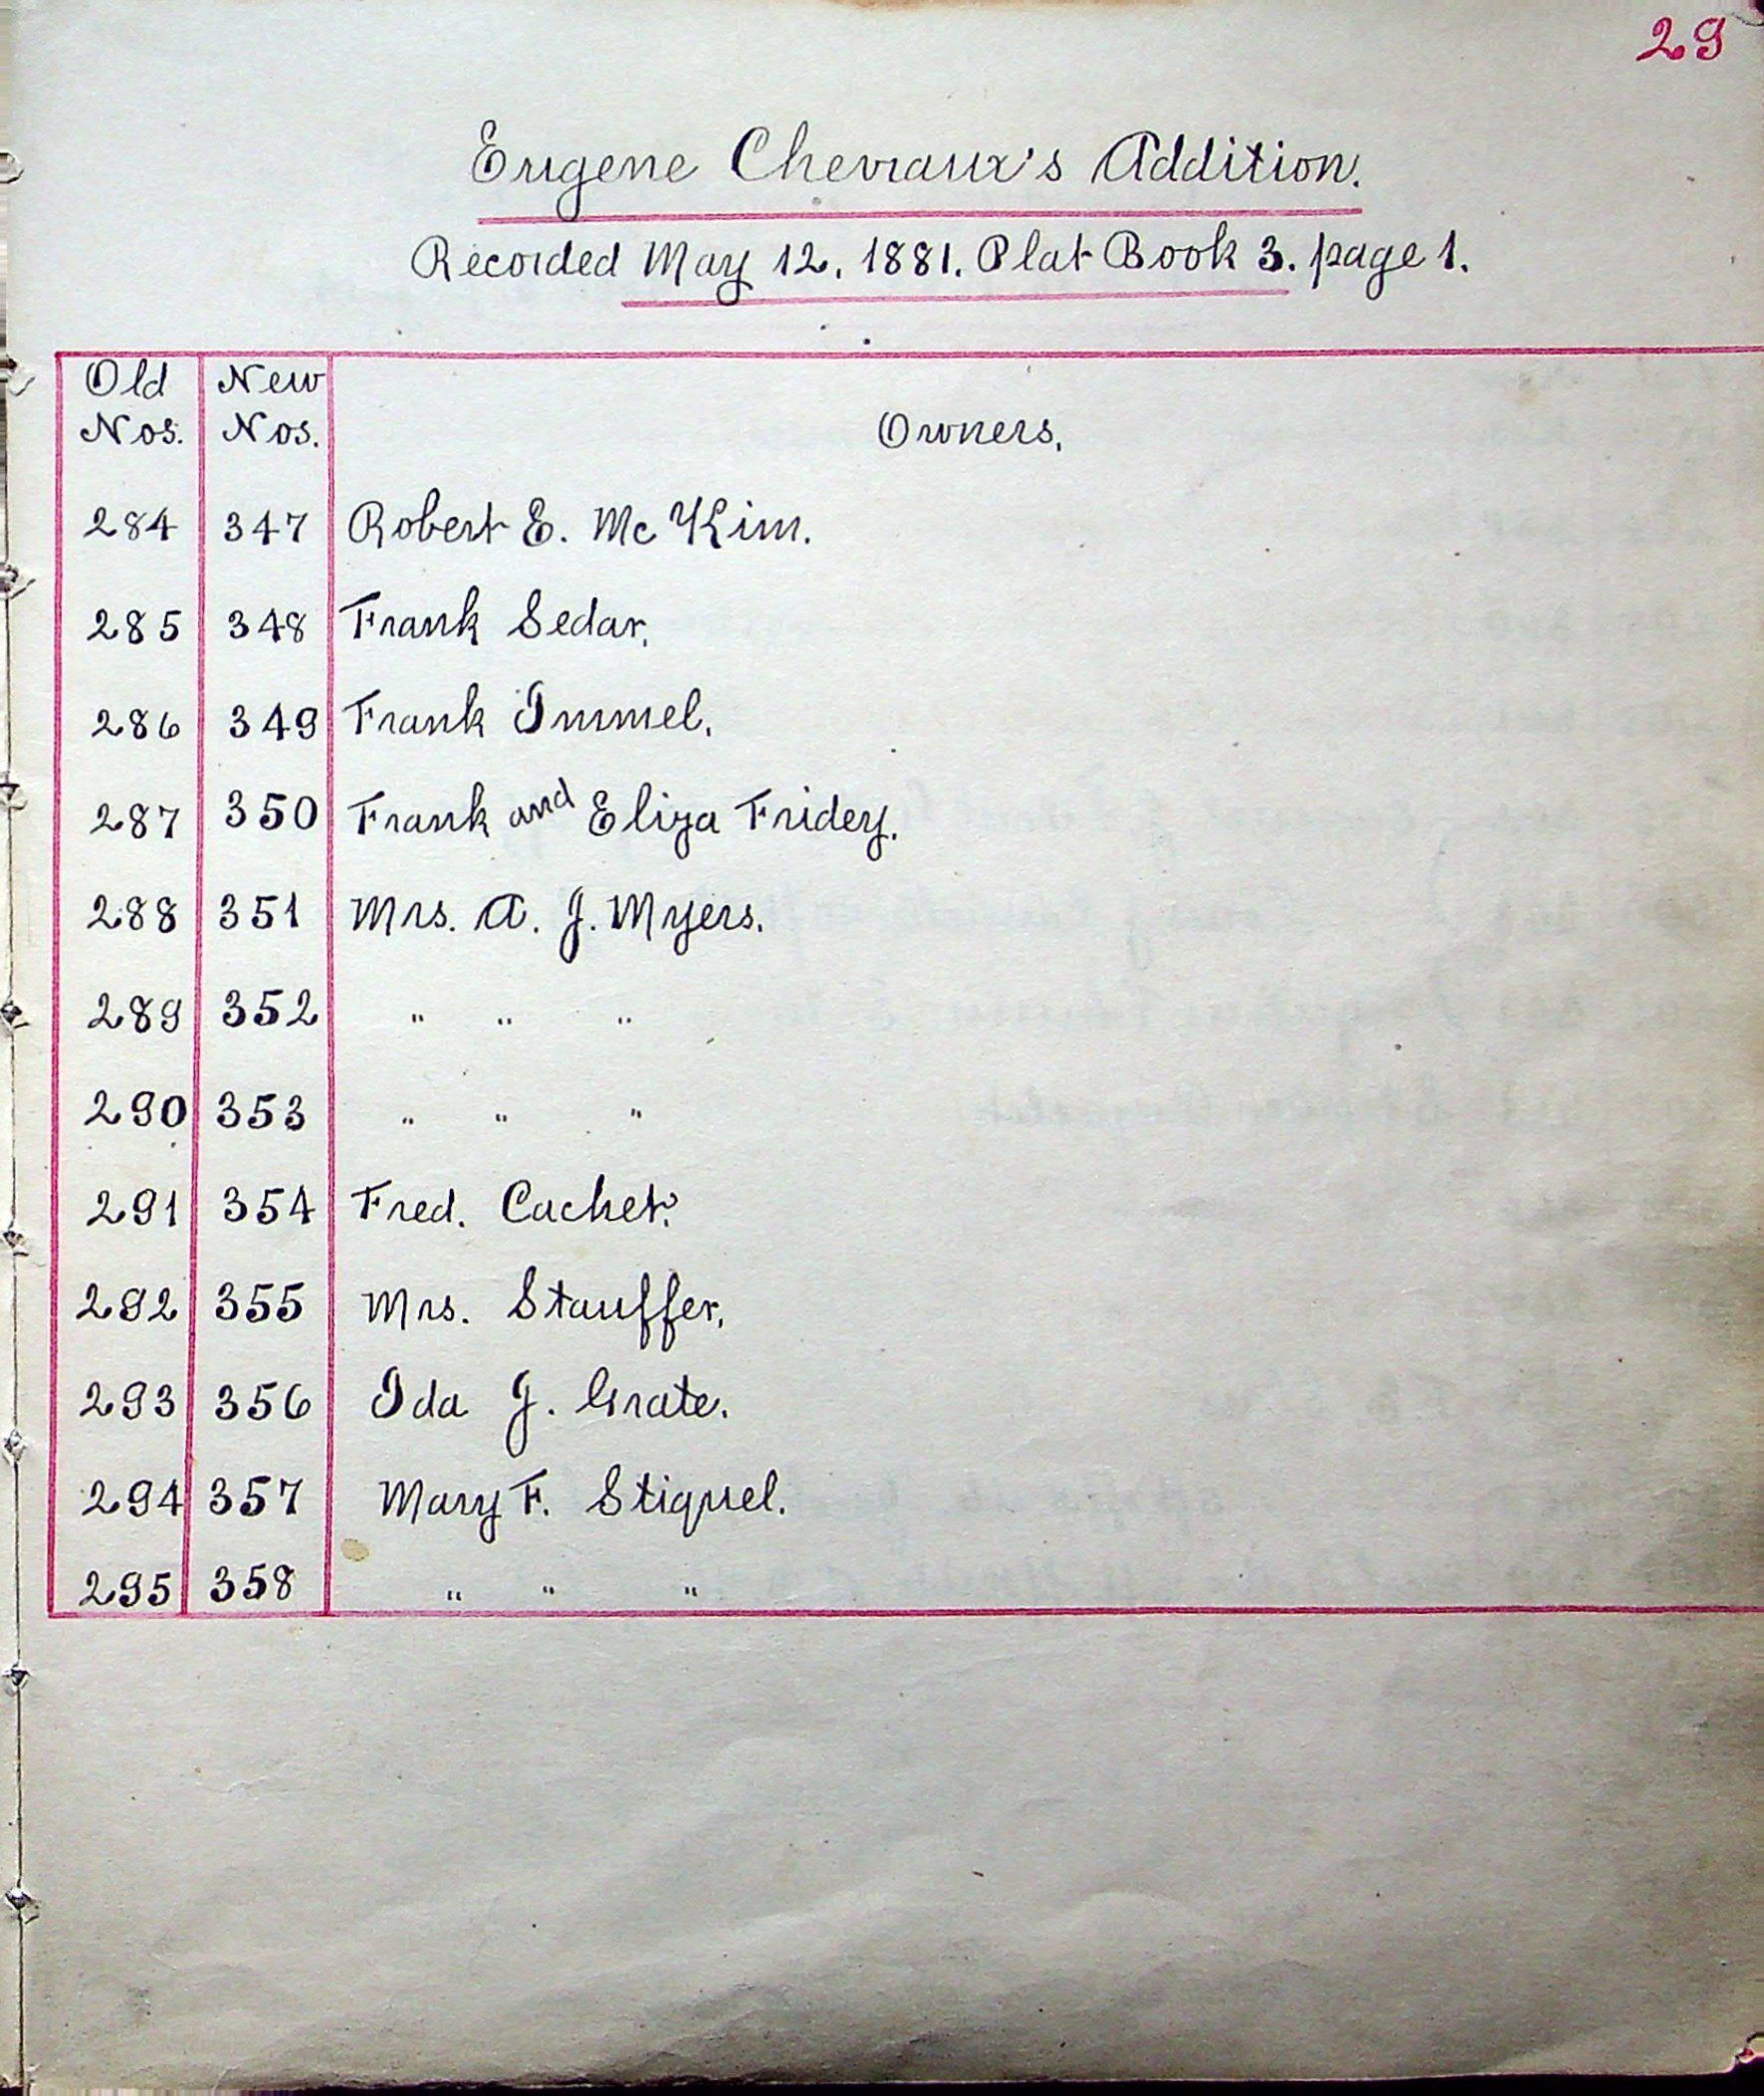 29
Eugene Chevraux's Addition.
Recorded May 12, 1881. Plat Book 3. page 1.
Old Nos. New Nos. Owners.
284 347 Robert E. McKim.
285 348 Frank Sedar.
286 349 Frank Immel.
287 350 Frank and Eliza Fridey.
288 351 Mrs. A. J. Myers.
289 352 " " "
290 353 " " "
291 354 Fred. Cachet.
292 355 Mrs. Stauffer.
293 356 Ida J. Grate.
294 357 Mary F. Stiquel.
295 358 " " "